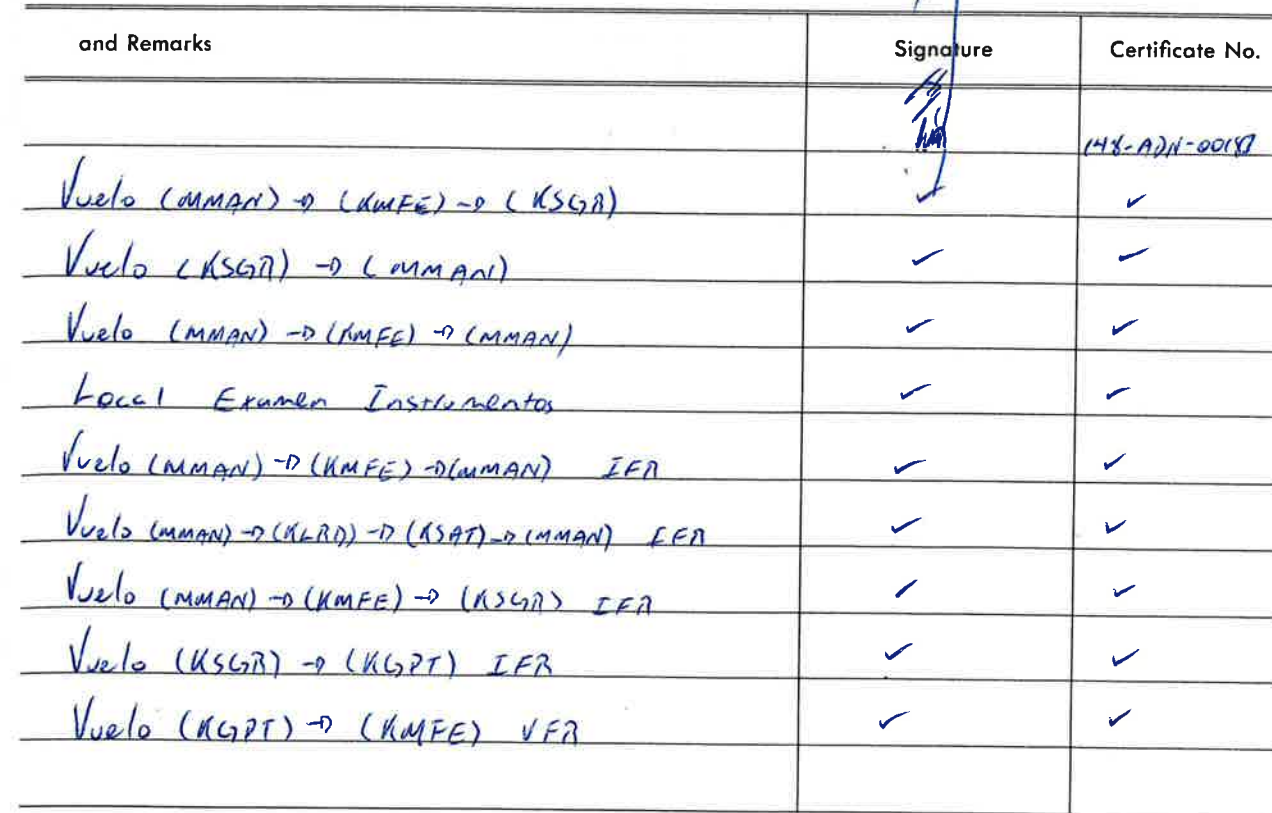 and Remarks Signature Certificate No.
Vuelo (MMAN) → (KMFE) → (KSGR) ✓ ✓
Vuelo (KSGR) → (MMAN) ✓ ✓
Vuelo (MMAN) → (KMFE) → (MMAN) ✓ ✓
Local Examen Instrumentos ✓ ✓
Vuelo (MMAN) → (KMFE) → (MMAN) IFR ✓ ✓
Vuelo (MMAN) → (KLRD) → (KSAT) → (MMAN) IFR ✓ ✓
Vuelo (MMAN) → (KMFE) → (KSGR) IFR ✓ ✓
Vuelo (KSGR) → (KGPT) IFR ✓ ✓
Vuelo (KGPT) → (KMFE) VFR ✓ ✓